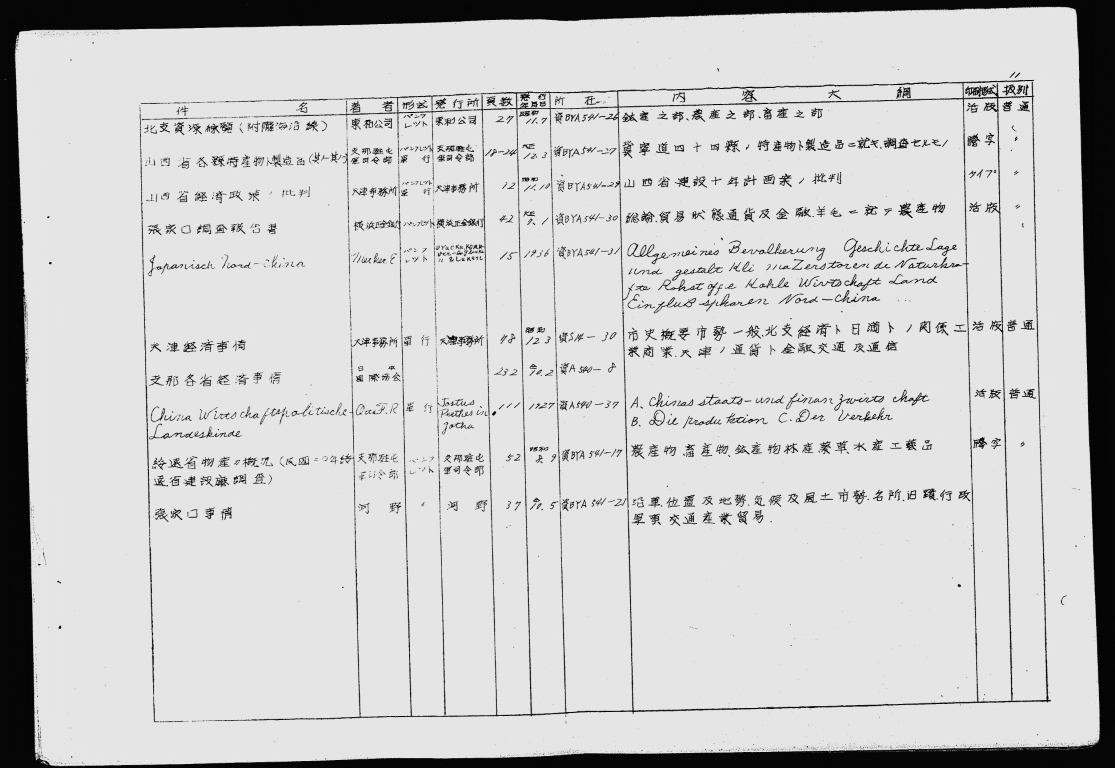 11
件 名 著者 形式 発行所 頁数 発行年月日 所在 内容大綱 印刷様式 扱別
北支資源綜覧(附隴海沿線) 東和公司 パンフレツト 東和公司 27 昭和11.7 資BYA541-26 鉱産之部、農産之部、畜産之部 活版 普通
山西省各縣特産物ト製造品 支那駐屯軍司令部 パンフレツト 単行 支那駐屯軍司令部 18-24 12.3 資BYA541-27 冀寧道四十四縣ノ特産物ト製造品ニ就キ調査セルモノ 謄字 〃
山西省経済政策ノ批判 天津事務所 パンフレツト 単行 天津事務所 12 11.10 資BYA541-29 山西省建設十年計画案ノ批判 タイプ 〃
張家口調査報告書 横浜正金銀行 パンフレツト 横浜正金銀行 42 9.1 資BYA541-30 総論、貿易状態通貨及金融、羊毛ニ就テ農産物 活版 〃
Japanisch Nord-China Merker E パンフレツト 15 1936 資BYA541-31 Allgemeines Bevolkerung Geschichte Lage
und gestalt Kli ma Zerstoren de Naturkra-
fte Rohstoffe Kohle Wirtschaft Land
Einfluß spharen Nord-China
天津経済事情 天津事務所 単行 天津事務所 48 昭和12.3 資S14-30 市史概要市勢一般、北支経済ト日満トノ関係工 活版 普通
業商業、天津ノ通貨ト金融交通及通信
支那各省経済事情 日本国際協会 232 10.2 資A540-8
China Wirtschaftspolitische 単行 Justus Perthes in Gotha 111 1927 資A540-37 A. Chinas staats-und finanzwirts chaft 活版 普通
Landeskinde B. Die produktion C. Der Verkehr
綏遠省物産ノ概況(民国二 年綏 支那駐屯軍司令部 パンフレツト 支那駐屯軍司令部 52 昭和8.9 資BYA541-17 農産物、畜産物、鉱産物林産薬草、水産工藝品 謄字 〃
遠省建設廳調査)
張家口事情 河野 〃 河野 37 10.5 資BYA541-21 沿革、位置及地勢、気候及風土市勢、名所、旧蹟行政
軍事交通産業貿易.